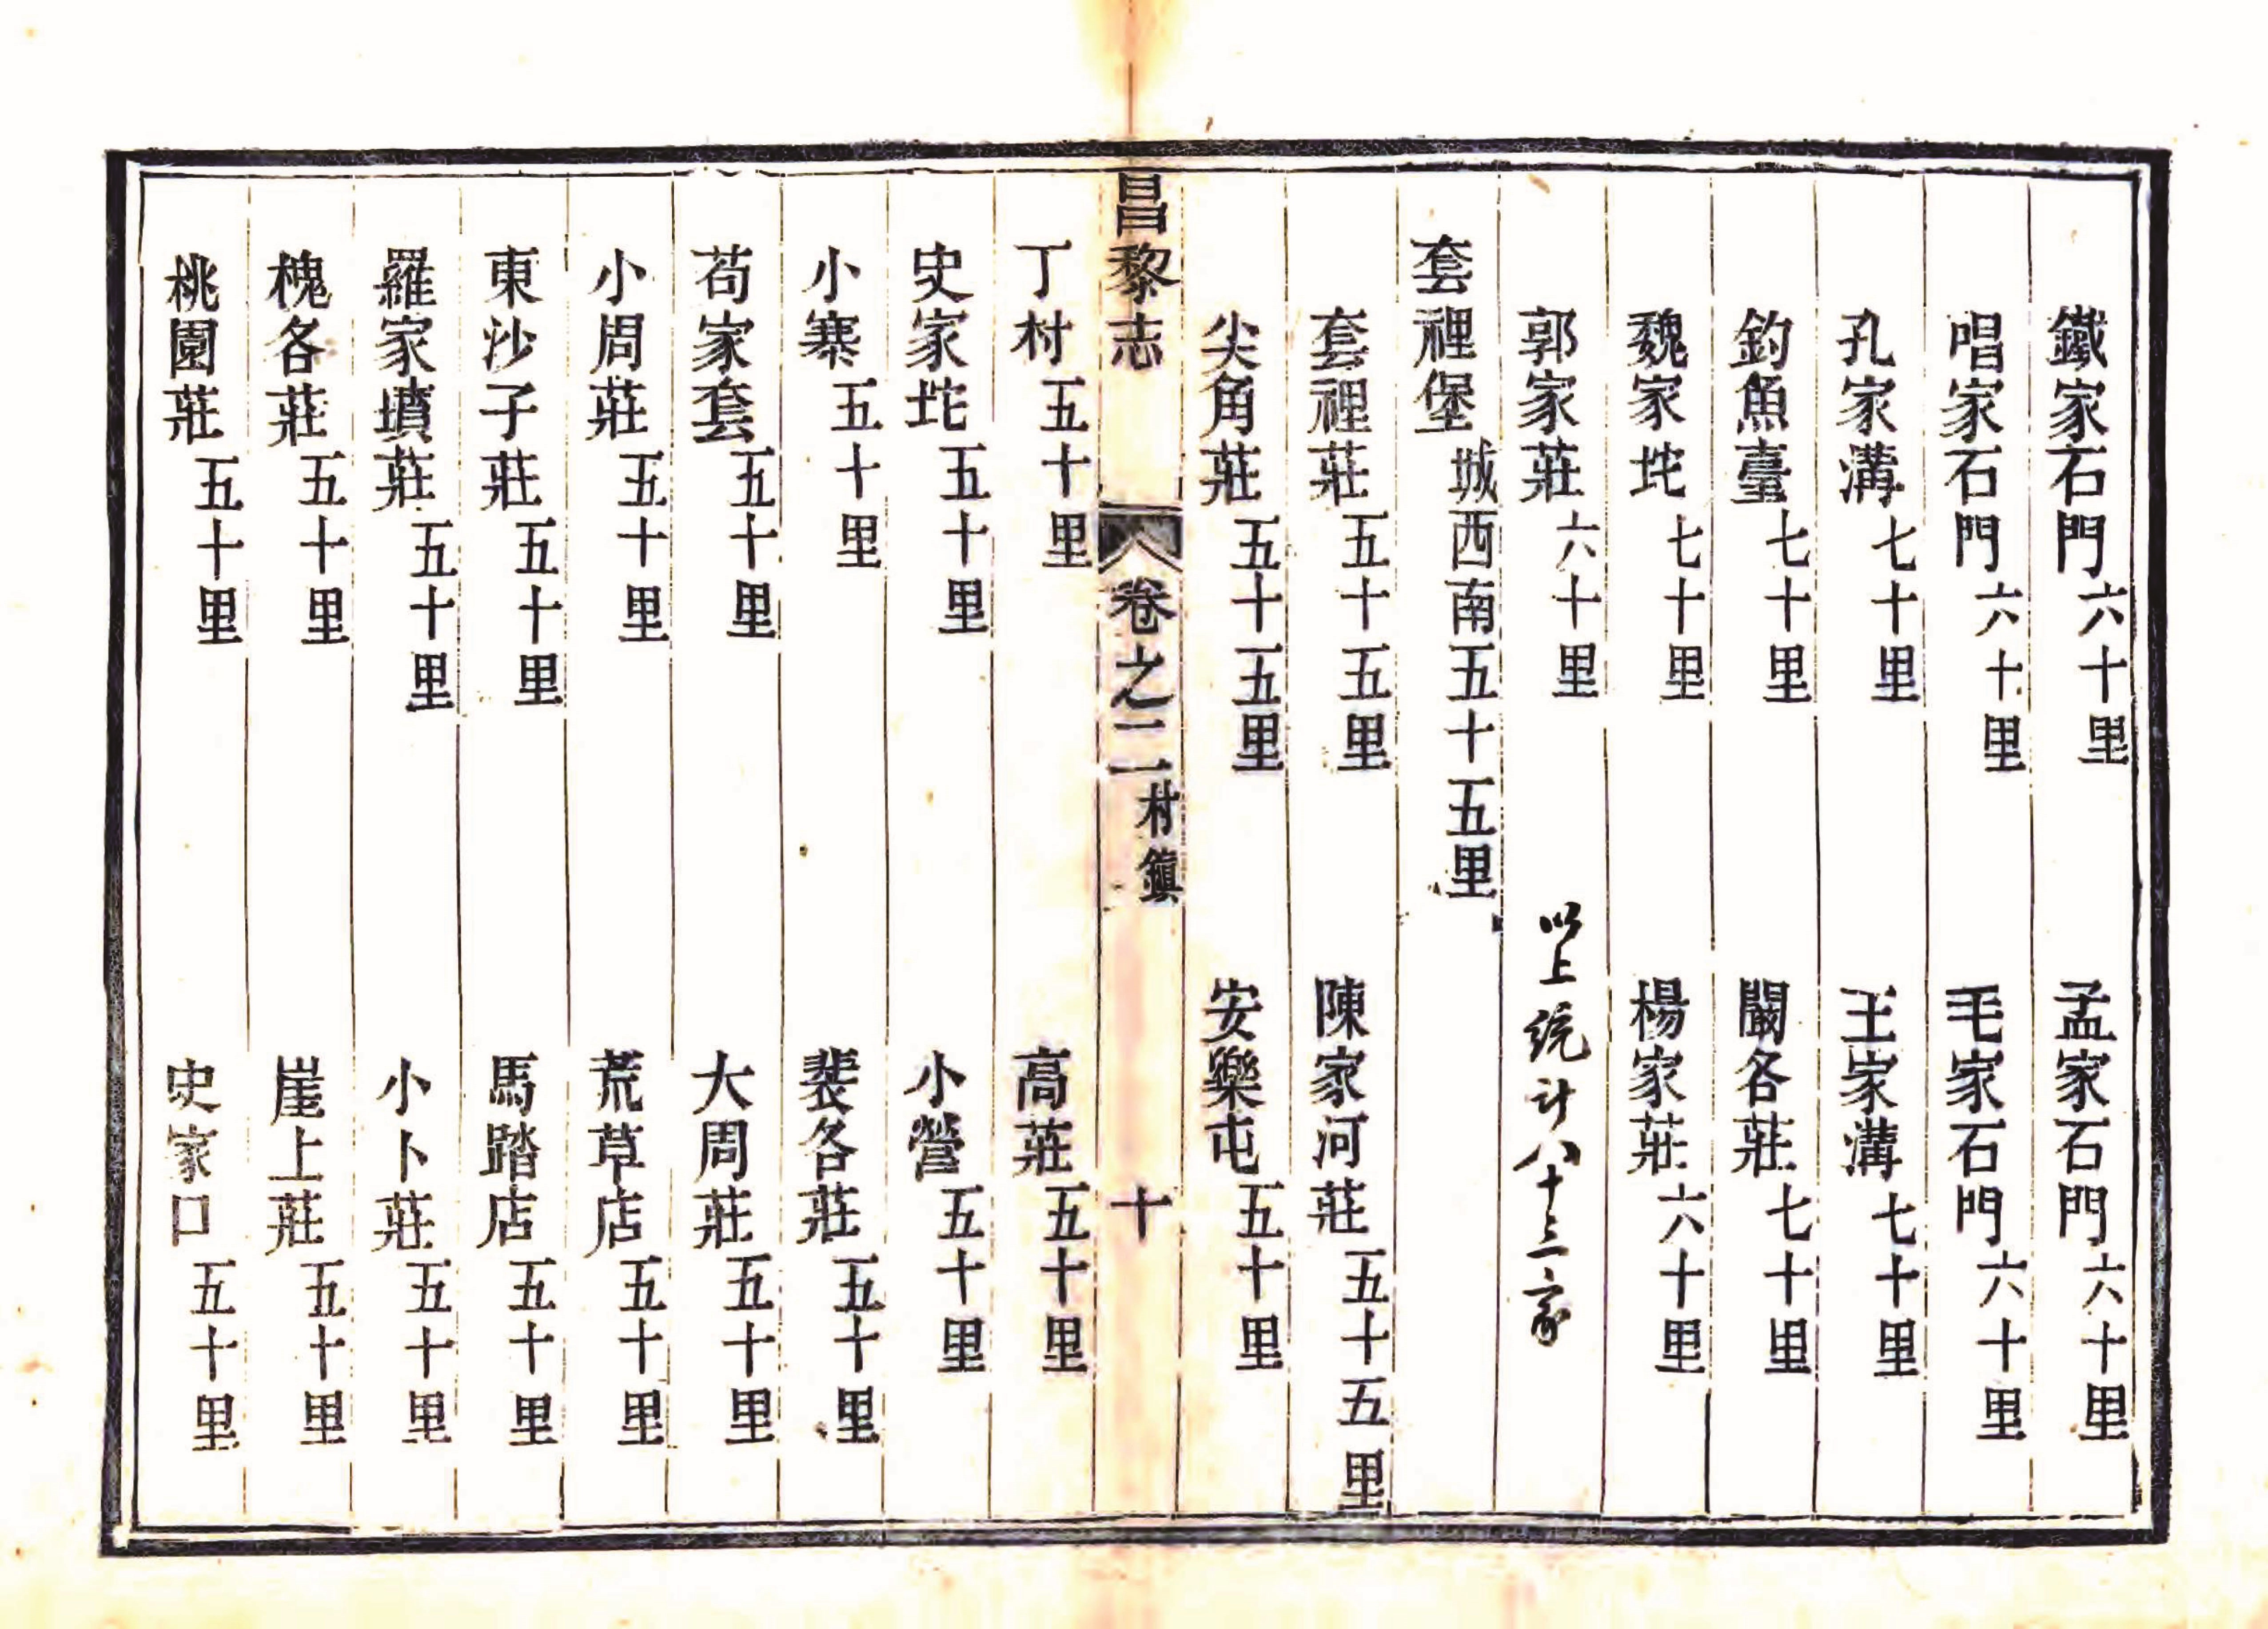 鐵家石門六十里 孟家石門六十里
唱家石門六十里 毛家石門六十里
孔家溝七十里 王家溝七十里
釣魚臺七十里 闞各莊七十里
魏家坨七十里 楊家莊六十里
郭家莊六十里 以上統計八十三家
套裡堡城西南五十五里
套裡莊五十五里 陳家河莊五十五里
尖角莊五十五里 安樂屯五十里
昌黎志 卷之二 村鎮 十
丁村五十里 高莊五十里
史家坨五十里 小營五十里
小寨五十里 裴各莊五十里
苟家套五十里 大周莊五十里
小周莊五十里 荒草店五十里
東沙子莊五十里 馬踏店五十里
羅家墳莊五十里 小卜莊五十里
槐各莊五十里 崖上莊五十里
桃園莊五十里 史家口五十里